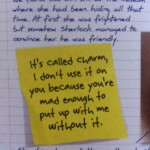 where she had been hiding all that
time. At first she was frightened
but somehow Sherlock managed to
convince her he was friendly.
It's called charm,
I don't use it on
you because you're
mad enough to
put up with me
without it.